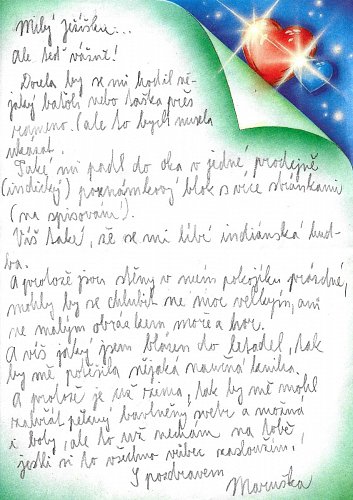 Milý Ježíšku...
Ale teď vážně!
Docela by se mi hodil ně-
jaký batoh nebo taška přes
rameno. (ale to bych musela
ukázat.
Také mi padl do oka v jedné prodejně
(indický) poznámkový blok s více stránkami
(na spisování).
Víš také, že se mi líbí indiánská hud-
ba.
A protože jsou stěny v mém pokojíku prázdné,
mohly by se chlubit ne moc velkým, ani
ne malým obrázkem moře a hor.
A víš jaký jsem blázen do letadel, tak
by mě potěšila nějaká naučná kniha.
A protože je už zima, tak by mě mohl
zahřát pěkný bavlněný svetr a možná
i boty, ale to už nechám na tobě,
jestli si to všechno vůbec zasloužím!
S pozdravem
Maruška